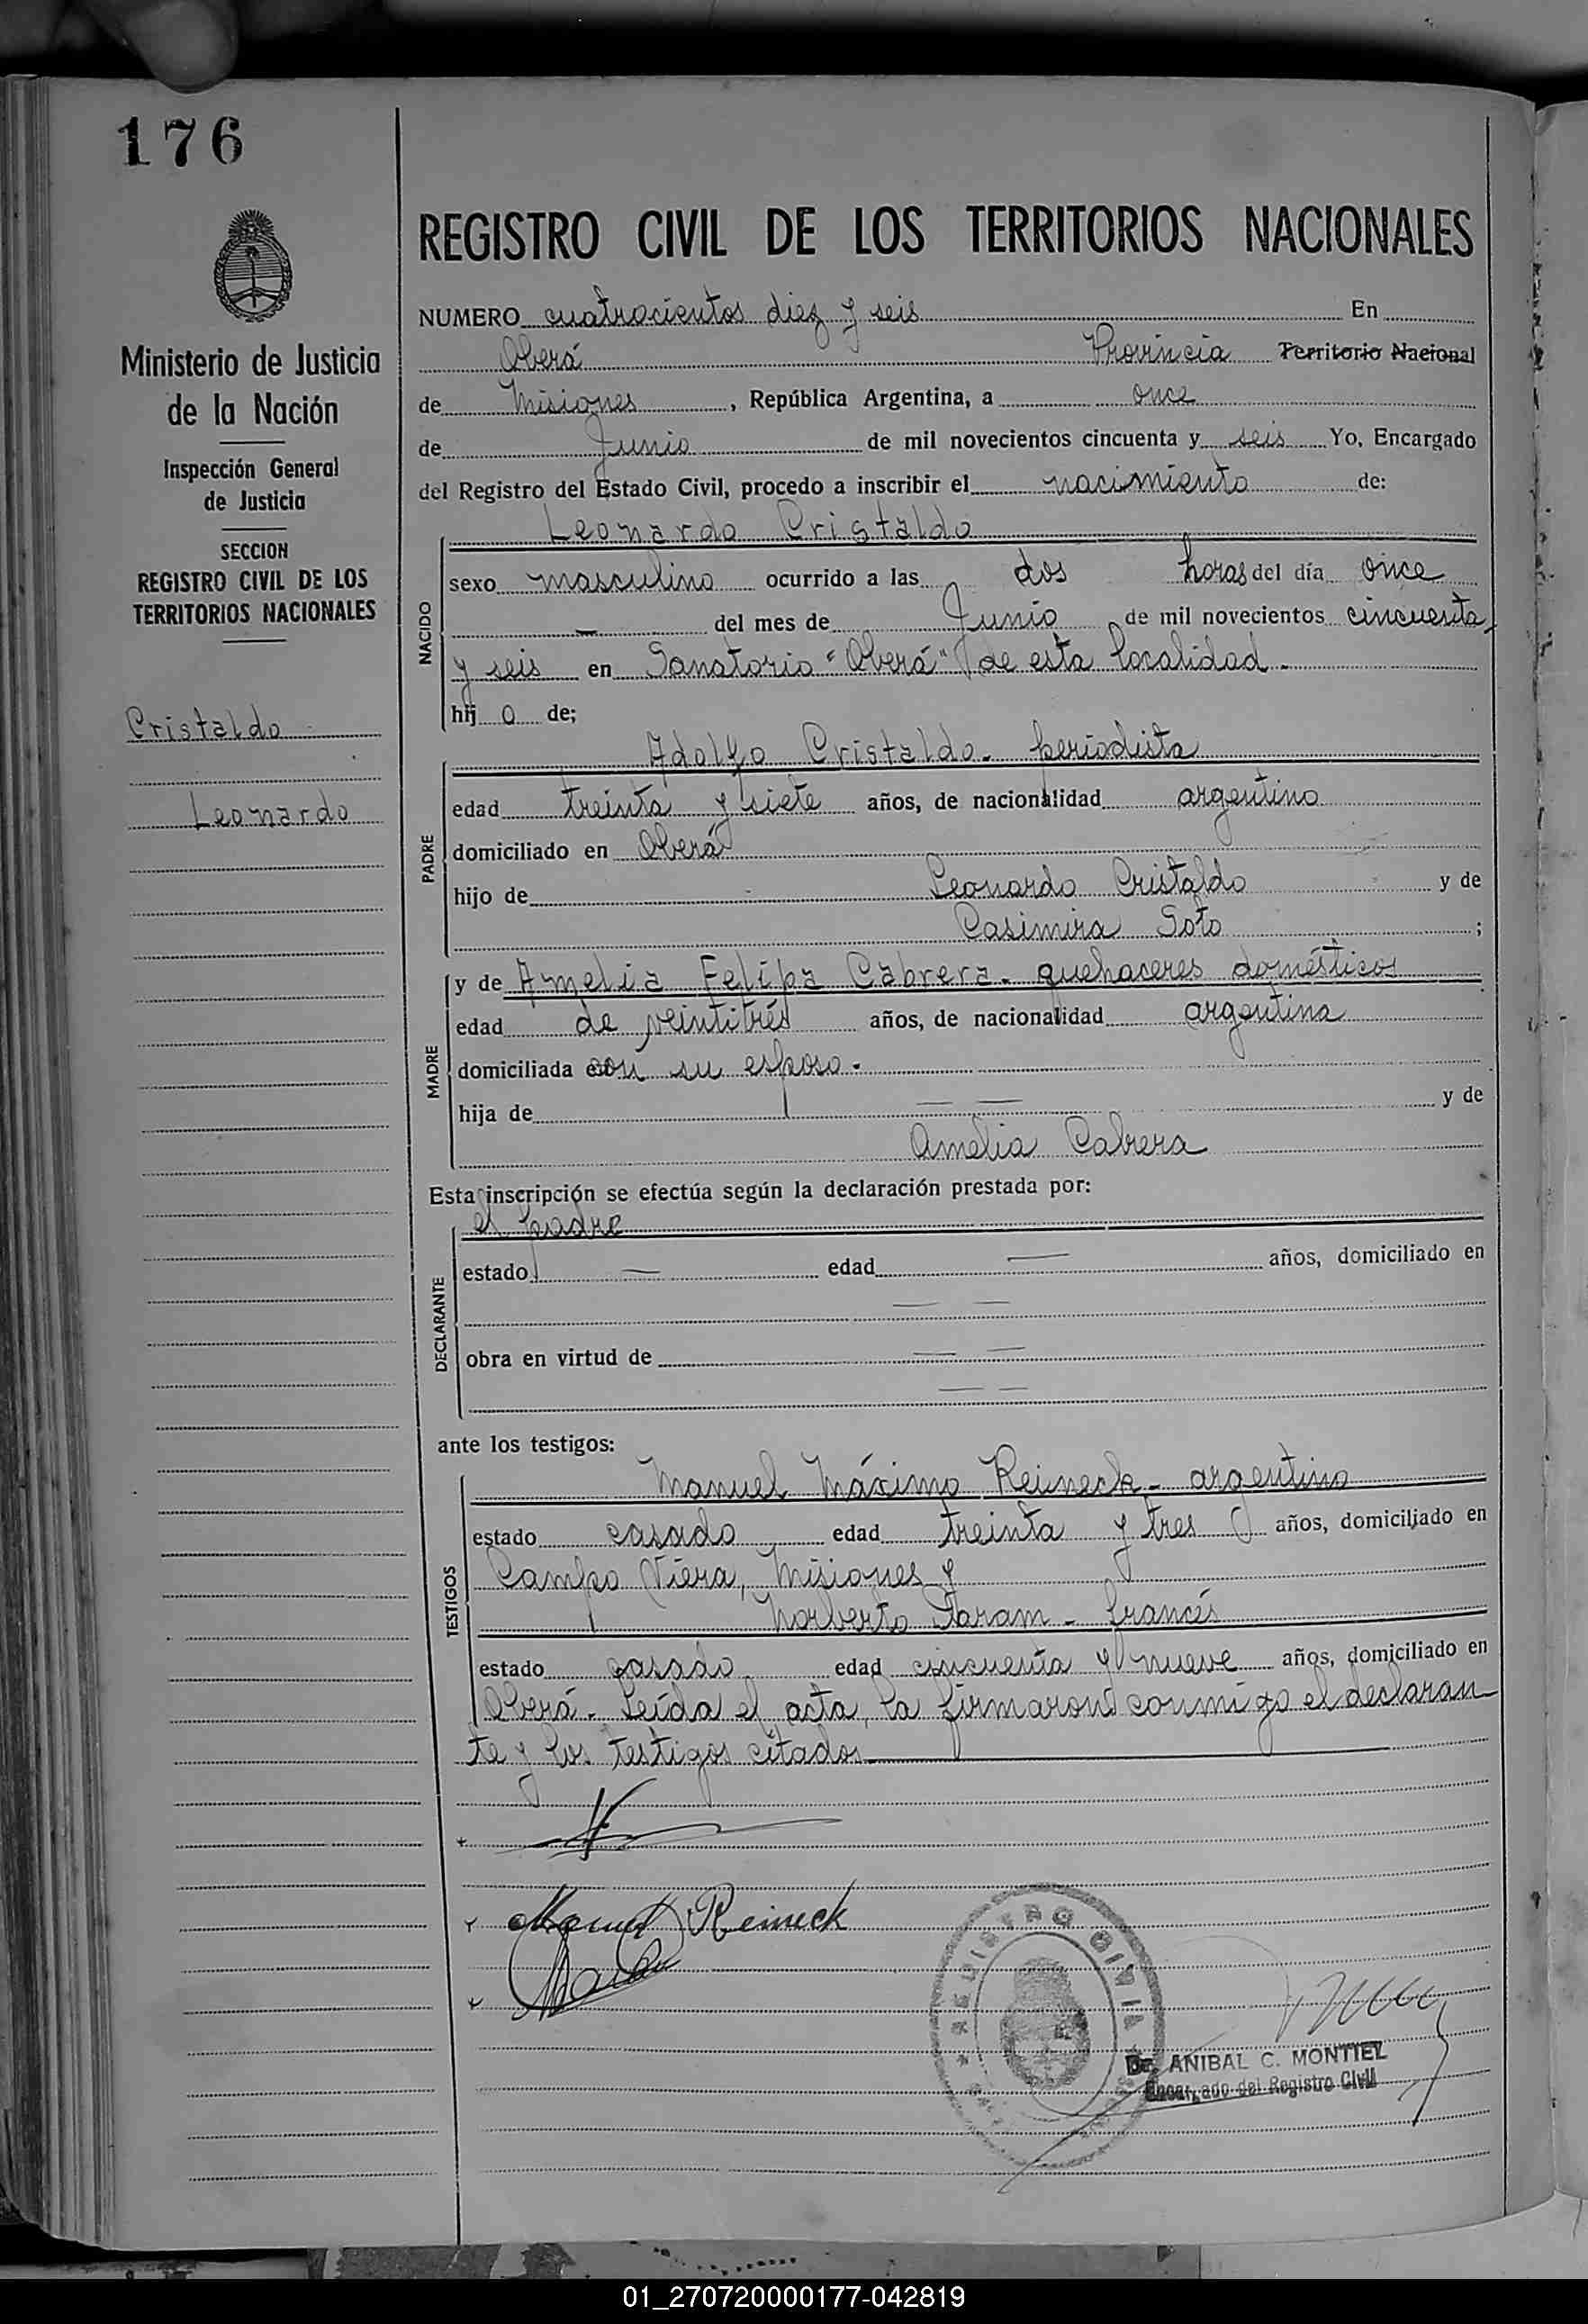 176
REGISTRO CIVIL DE LOS TERRITORIOS NACIONALES
Ministerio de Justicia
de la Nación
Inspección General
de Justicia
SECCION
REGISTRO CIVIL DE LOS
TERRITORIOS NACIONALES
Cristaldo
Leonardo
NUMERO cuatrocientos diez y seis En
Oberá Provincia Territorio Nacional
de Misiones, República Argentina, a once
de Junio de mil novecientos cincuenta y seis Yo, Encargado
del Registro del Estado Civil, procedo a inscribir el nacimiento de:
Leonardo Cristaldo
NACIDO
sexo masculino ocurrido a las dos horas del día once
— del mes de Junio de mil novecientos cincuenta
y seis en Sanatorio "Oberá" de esta localidad.
hij o de;
Adolfo Cristaldo - periodista
PADRE
edad treinta y siete años, de nacionalidad argentino
domiciliado en Oberá
hijo de Leonardo Cristaldo y de
Casimira Soto ;
y de Amelia Felipa Cabrera - quehaceres domésticos
MADRE
edad de veintitrés años, de nacionalidad argentina
domiciliada con su esposo.
hija de — — y de
Amelia Cabrera
Esta inscripción se efectúa según la declaración prestada por:
el padre
DECLARANTE
estado — edad — años, domiciliado en
— —
obra en virtud de — —
— —
ante los testigos:
Manuel Máximo Reineck - argentino
TESTIGOS
estado casado edad treinta y tres años, domiciliado en
Campo Viera, Misiones y
Norberto - francés
estado casado edad cincuenta y nueve años, domiciliado en
Oberá. Leída el acta, la firmaron conmigo el declaran
te y los testigos citados
Manuel Reineck
REGISTRO CIVIL
Dr. ANIBAL C. MONTIEL
Encargado del Registro Civil
01_270720000177-042819